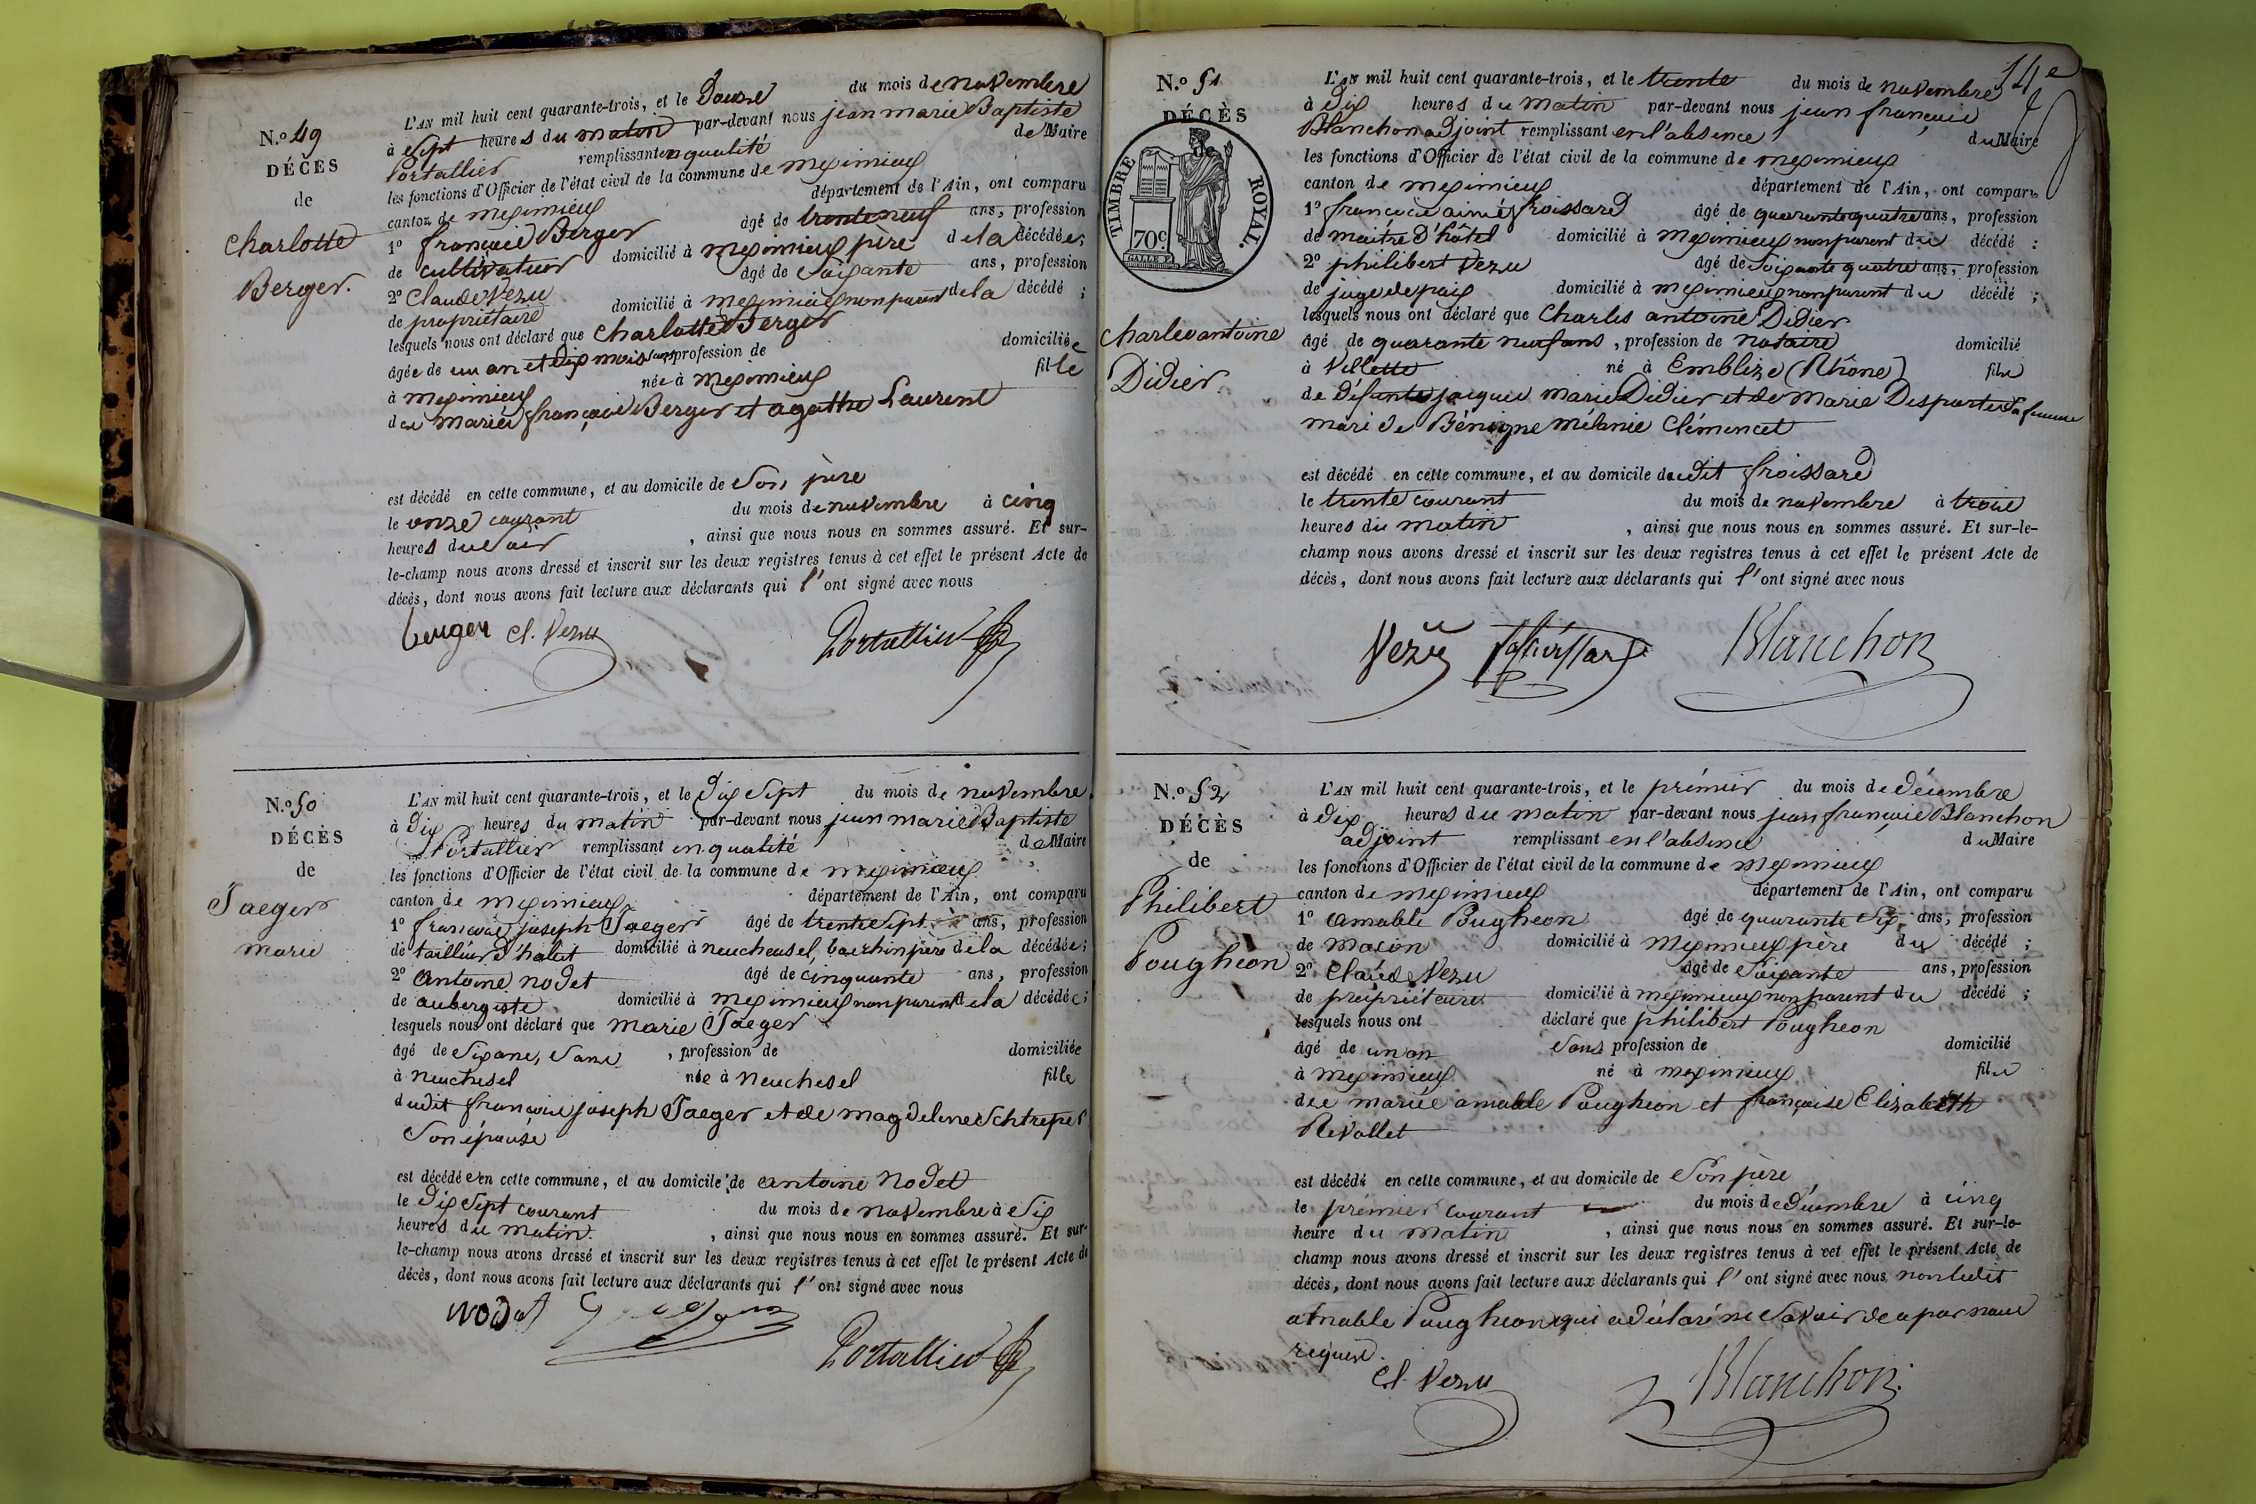 N.º 49
DÉCÈS
de
Charlotte
Berger.
L'AN mil huit cent quarante-trois, et le Douze du mois de novembre
à sept heures du matin par-devant nous jean marie Baptiste
Portallier remplissant en qualité de Maire
les fonctions d'Officier de l'état civil de la commune de meximieux
canton de meximieux département de l'Ain, ont comparu
1º françois Berger âgé de trente neuf ans, profession
de cultivateur domicilié à meximieux père de la décédée;
2º Claude Vezu âgé de soixante ans, profession
de propriétaire domicilié à meximieux non parent de la décédé ;
lesquels nous ont déclaré que Charlotte Berger
âgée de un an et dix mois sans profession de domiciliée
à meximieux née à meximieux fille
des mariés françois Berger et agathe Laurent
est décédé en cette commune, et au domicile de son père
le onze courant du mois de novembre à cinq
heures du soir , ainsi que nous nous en sommes assuré. Et sur-
le-champ nous avons dressé et inscrit sur les deux registres tenus à cet effet le présent Acte de
décès, dont nous avons fait lecture aux déclarants qui l'ont signé avec nous
berger Cl. Vezu Portallier
N.º 50
DÉCÈS
de
Jaeger
marie
L'AN mil huit cent quarante-trois, et le Dix sept du mois de novembre
à Dix heures du matin par-devant nous jean marie Baptiste
Portallier remplissant en qualité de Maire
les fonctions d'Officier de l'état civil de la commune de meximieux
canton de meximieux département de l'Ain, ont comparu
1º françois joseph Jaeger âgé de trente sept ans, profession
de tailleur d'habit domicilié à neucheusel, bas rhin père de la décédée;
2º antoine nodet âgé de cinquante ans, profession
de aubergiste domicilié à meximieux non parent de la décédée;
lesquels nous ont déclaré que marie Jaeger
âgé de six ans, sans , profession de domiciliée
à neuchesel née à neuchesel fille
dudit françois joseph Jaeger et de magdelene Schtreper
son épouse
est décédée en cette commune, et au domicile de antoine nodet
le dix sept courant du mois de novembre à six
heures du matin , ainsi que nous nous en sommes assuré. Et sur-
le-champ nous avons dressé et inscrit sur les deux registres tenus à cet effet le présent Acte de
décès, dont nous avons fait lecture aux déclarants qui l'ont signé avec nous
nodet Portallier
14e
N.º 51
DÉCÈS
TIMBRE ROYAL.
70c.
Charles antoine
Didier
L'AN mil huit cent quarante-trois, et le trente du mois de novembre
à dix heures du matin par-devant nous jean françois
Blanchon adjoint remplissant en l'absence du Maire
les fonctions d'Officier de l'état civil de la commune de meximieux
canton de meximieux département de l'Ain, ont comparu
1º françois aimé froissard âgé de quarante quatre ans, profession
de maitre d'hôtel domicilié à meximieux non parent du décédé ;
2º philibert Vezu âgé de soixante quatre ans, profession
de juge de paix domicilié à meximieux non parent du décédé ;
lesquels nous ont déclaré que Charles antoine Didier
âgé de quarante neuf ans, profession de notaire domicilié
à Villette né à Emblize (Rhône) fils
de Défunts jacques marie Didier et de Marie Desportes sa femme
mari de Bénigne mélanie Clémencet
est décédé en cette commune, et au domicile dudit froissard
le trente courant du mois de novembre à trois
heures du matin , ainsi que nous nous en sommes assuré. Et sur-le-
champ nous avons dressé et inscrit sur les deux registres tenus à cet effet le présent Acte de
décès, dont nous avons fait lecture aux déclarants qui l'ont signé avec nous
Vezu froissard Blanchon
N.º 52
DÉCÈS
de
Philibert
Pougheon
L'AN mil huit cent quarante-trois, et le premier du mois de décembre
à dix heures du matin par-devant nous jean françois Blanchon
adjoint remplissant en l'absence du Maire
les fonctions d'Officier de l'état civil de la commune de meximieux
canton de meximieux département de l'Ain, ont comparu
1º amable Pougheon âgé de quarante six ans, profession
de maçon domicilié à meximieux père du décédé ;
2º Claude Vezu âgé de soixante ans, profession
de propriétaire domicilié à meximieux non parent du décédé ;
lesquels nous ont déclaré que philibert Pougheon
âgé de un an sans profession de domicilié
à meximieux né à meximieux fils
des mariés amable Pougheon et françoise Elizabeth
Revollet
est décédé en cette commune, et au domicile de son père
le premier courant du mois de décembre à cinq
heure du matin , ainsi que nous nous en sommes assuré. Et sur-le-
champ nous avons dressé et inscrit sur les deux registres tenus à cet effet le présent Acte de
décès, dont nous avons fait lecture aux déclarants qui l'ont signé avec nous, non ledit
amable Pougheon qui a déclaré ne savoir de ce par nous
requis.
Cl. Vezu Blanchon